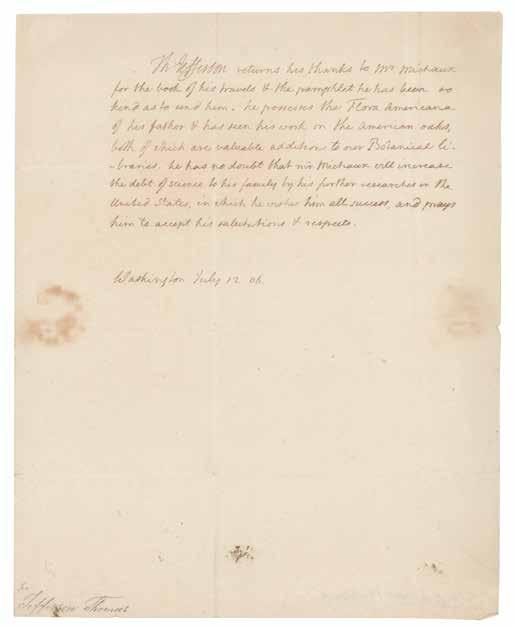 Th Jefferson returns his thanks to Mr Michaux
for the book of his travels & the pamphlet he has been so
kind as to send him. he possesses the Flora Americana
of his father & has seen his work on the American oaks,
both of which are valuable additions to our Botanical li-
-braries. he has no doubt that mr Michaux will increase
the debt of science to his family by his further researches in the
United States, in which he wishes him all success, and prays
him to accept his salutations & respects.
Washington July 12 06.
Jefferson Thomas